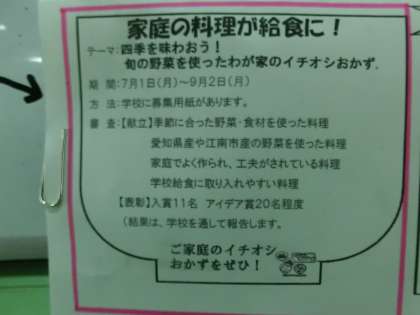 家庭の料理が給食に！
テーマ：四季を味わおう！
旬の野菜を使ったわが家のイチオシおかず.
期　間：7月1日（月）～9月2日（月）
方　法：学校に募集用紙があります。
審　査：【献立】季節に合った野菜・食材を使った料理
愛知県産や江南市産の野菜を使った料理
家庭でよく作られ、工夫がされている料理
学校給食に取り入れやすい料理
【表彰】入賞11名　アイデア賞20名程度
（結果は、学校を通して報告します。
ご家庭のイチオシ
おかずをぜひ！